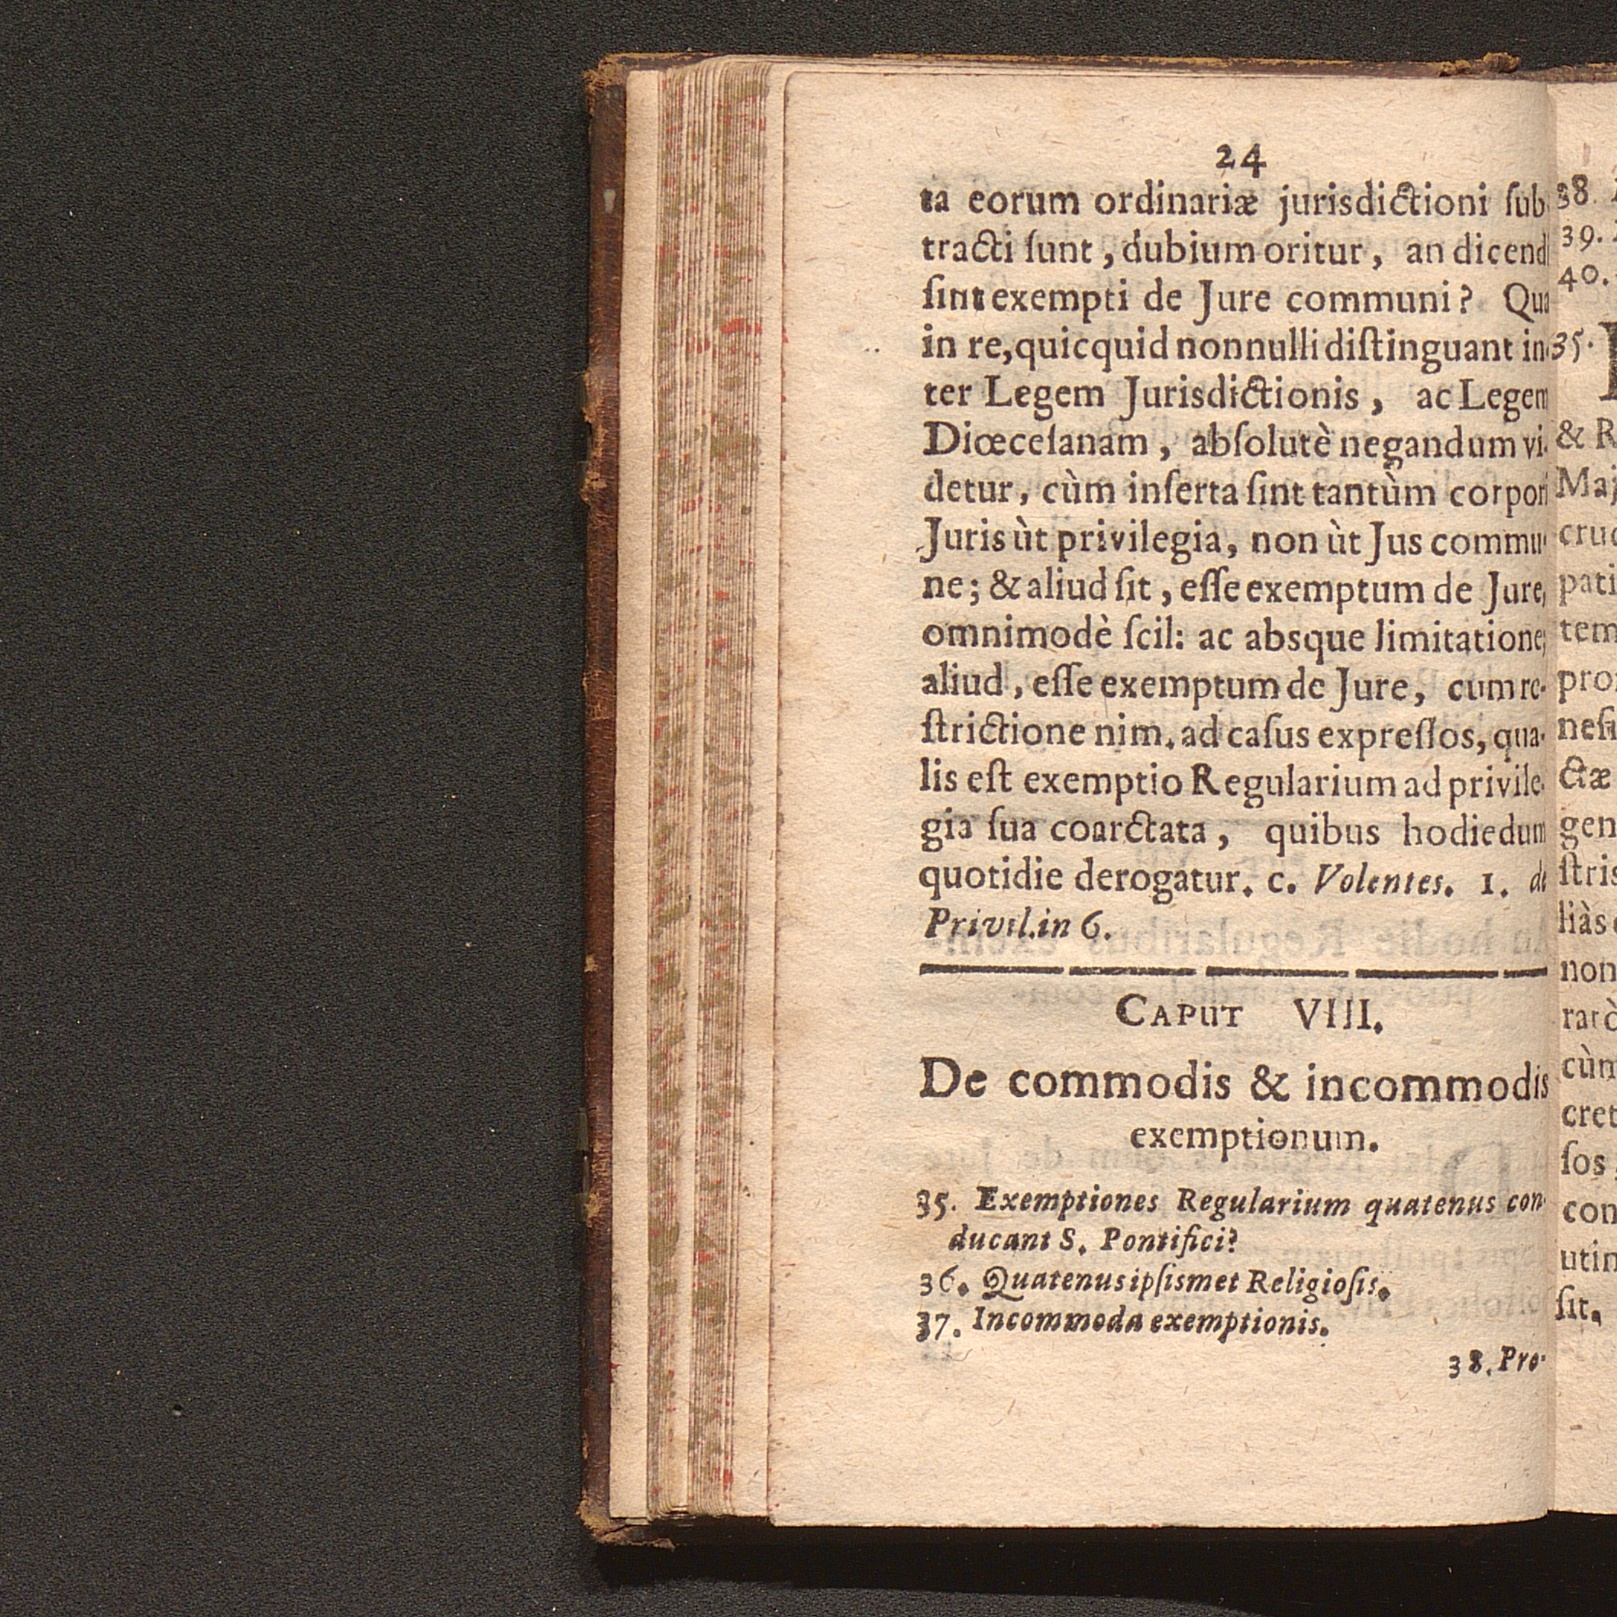 24
ta eorum ordinariæ jurisdictioni ſub
tracti ſunt, dubium oritur, an dicend
ſint exempti de Jure communi? Qua
in re, quicquid nonnulli diſtinguant in-
ter Legem Jurisdictionis, ac Legem
Diœceſanam, abſolutè negandum vi-
detur, cùm inſerta ſint tantùm corpori
Juris ùt privilegia, non ùt Jus commu-
ne; & aliud ſit, eſſe exemptum de Jure,
omnimodè ſcil: ac absque limitatione;
aliud, eſſe exemptum de Jure, cum re-
ſtrictione nim. ad caſus expreſſos, qua-
lis eſt exemptio Regularium ad privile-
gia ſua coarctata, quibus hodiedum
quotidie derogatur. c. Volentes. 1. de
Privil. in 6.
CAPUT VIII.
De commodis & incommodis
exemptionum.
35. Exemptiones Regularium quatenus con-
ducant S. Pontifici?
36. Quatenus ipſismet Religioſis.
37. Incommoda exemptionis.
38. Pro-
38.
39.
40.
35.
& R
Maj
cruc
pati
tem
pro
neſi
ctæ
gen
ſtris
liàs
non
rarò
cùm
cret
ſos
con
utin
ſit.